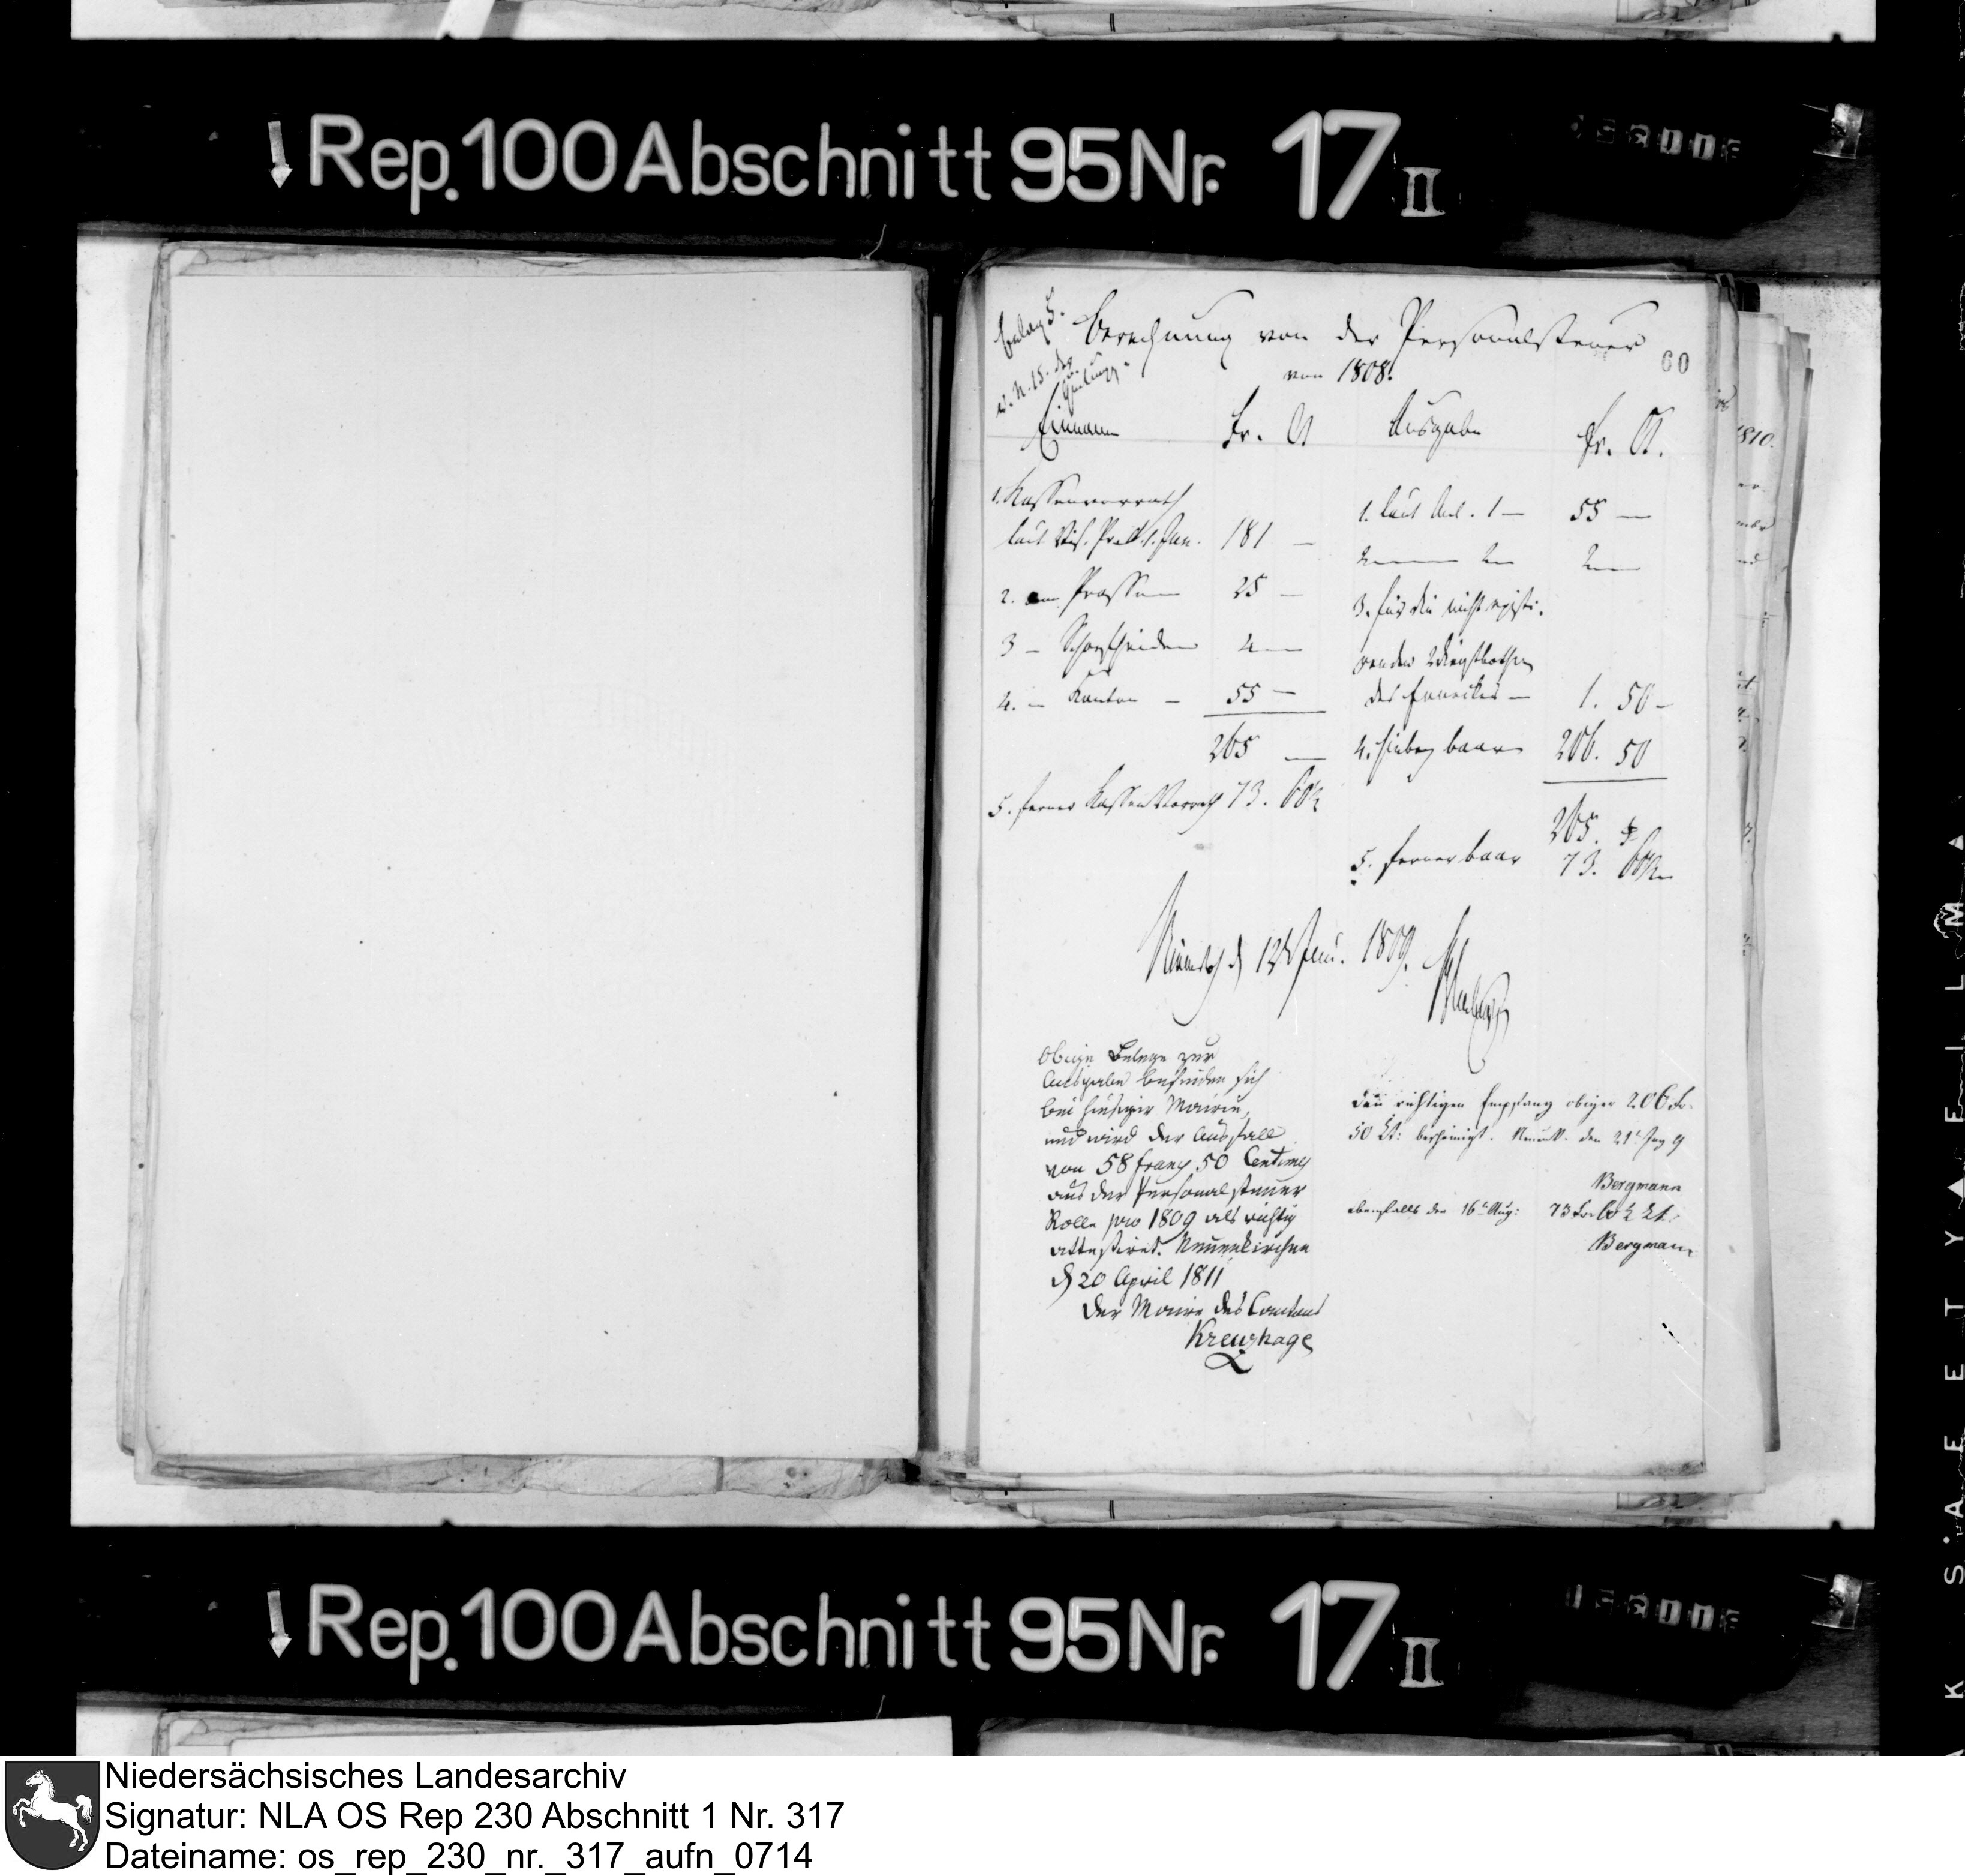 Rep. 100 Abschnitt 95 Nr. 17 II
Berechnung von der Personalsteuer
von 1808.
60
Beleg 5.
Einnahme Fr. Ct Ausgabe Fr. Ct.
1. Kassenvorrath
laut Jan. 181 —
2. 25 —
3 — 4 —
4. — Kanton — 55 —
265 —
5. ferner Kassen Vorrath 73. 60½
1. laut Anl. 1 — 55 —
2 — 2 — 2 —
3. für die nicht existi-
renden Dienstbothen
des — 1. 50 —
4. hiebey baar 206. 50
265.
5. ferner baar 73. 60½
12 1809.
Obige Belege zur
Ausgabe befinden sich
bei hiesiger Mairie,
und wird der Ausfall
von 58 francs 50 Centimes
aus der Personalsteuer
Rolle pro 1809 als richtig
attestiret. Neuenkirchen
d 20 April 1811
Der Maire des Cantons
Kreuzhage
Den richtigen Empfang obiger 206 Fr.
50 Ct: bescheinigt. den 21t 9
Bergmann
ebenfalls den 16t Aug: 73 Fr. 60½ Ct.
Bergmann
1810.
Rep. 100 Abschnitt 95 Nr. 17 II
Niedersächsisches Landesarchiv
Signatur: NLA OS Rep 230 Abschnitt 1 Nr. 317
Dateiname: os_rep_230_nr._317_aufn_0714